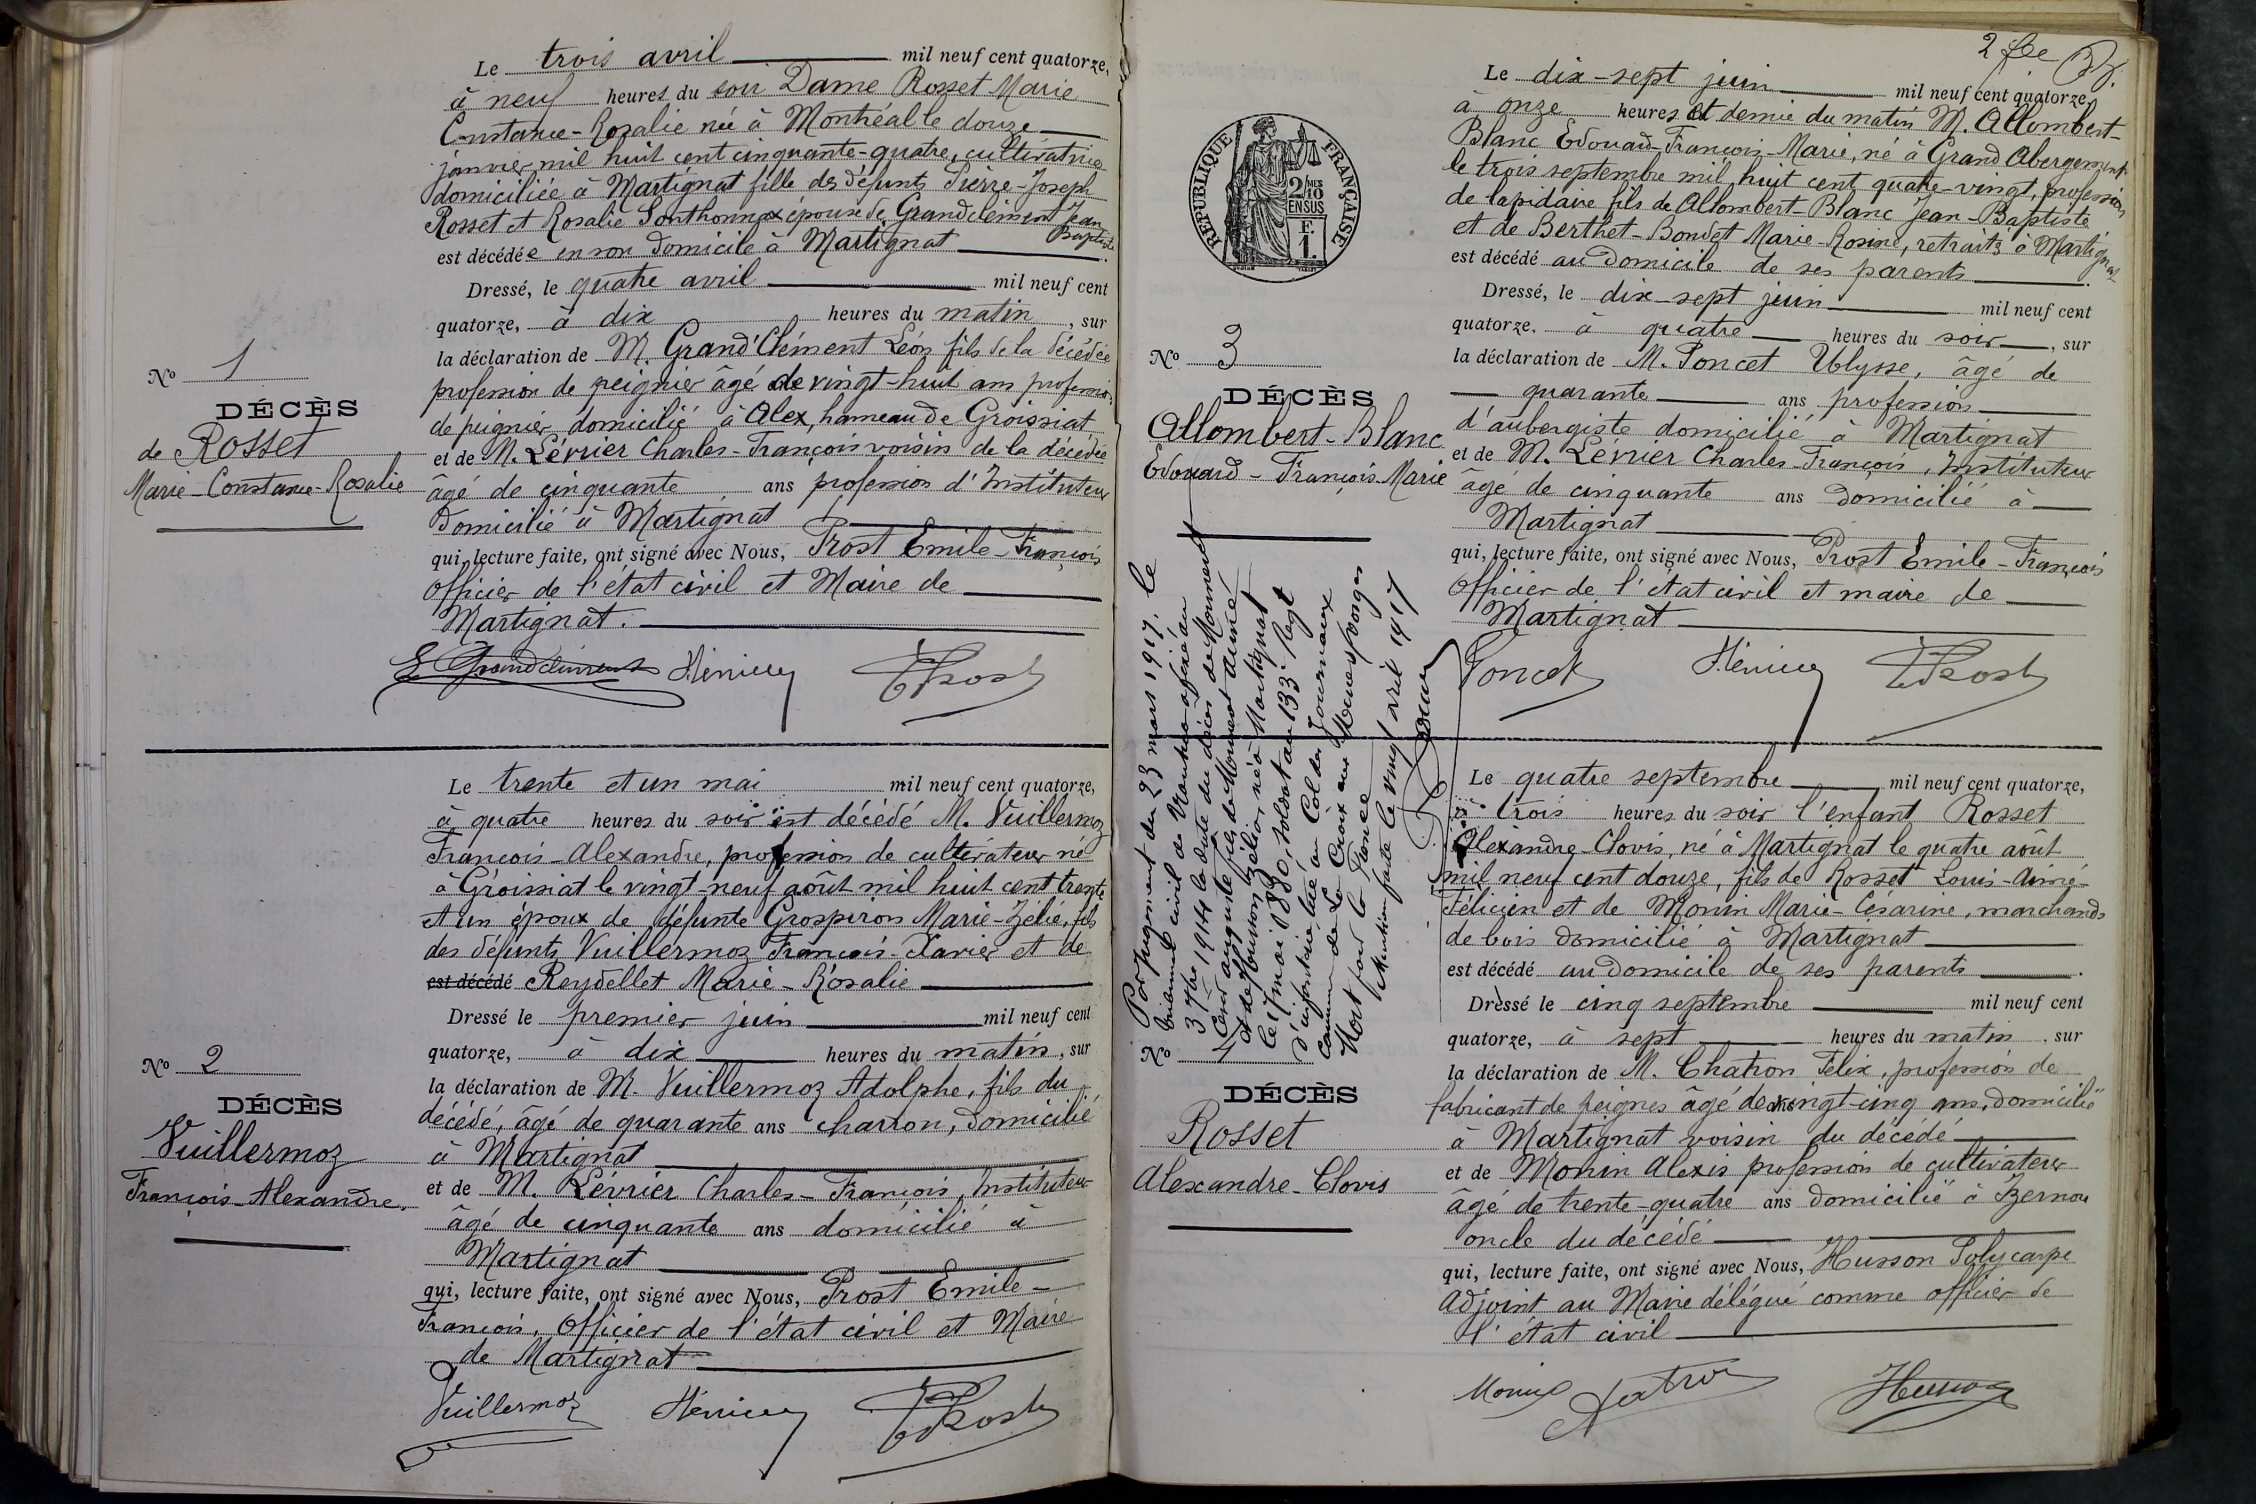 Le trois avril mil neuf cent quatorze,
à neuf heures du soir Dame Rosset Marie
Constance-Rosalie née à Montréal le douze
janvier mil huit cent cinquante-quatre, cultivatrice
domiciliée à Martignat fille des défunts Pierre-Joseph
Rosset et Rosalie Sonthonnax épouse de Grandclément Jean
Baptiste
est décédée en son domicile à Martignat
Dressé, le quatre avril mil neuf cent
quatorze, à dix heures du matin, sur
la déclaration de M. Grand'Clément Léon fils de la décédée
profession de peignier âgé de vingt-huit ans profession
de peignier domicilié à Alex, hameau de Groissiat
et de M. Lévrier Charles-François voisin de la décédée
âgé de cinquante ans profession d'Instituteur
domicilié à Martignat
qui, lecture faite, ont signé avec Nous, Prost Emile-François
Officier de l'état civil et Maire de
Martignat.
Grandclément Prost
No 1
DÉCÈS
de Rosset
Marie-Constance-Rosalie
Le trente et un mai mil neuf cent quatorze,
à quatre heures du soir est décédé M. Vuillermoz
François-Alexandre, profession de cultivateur né
à Groissiat le vingt-neuf août mil huit cent trente
et un époux de défunte Grospiron Marie-Zélie, fils
des défunts Vuillermoz François-Xavier et de
est décédé Reydellet Marie-Rosalie
Dressé le premier juin mil neuf cent
quatorze, à dix heures du matin, sur
la déclaration de M. Vuillermoz Adolphe, fils du
décédé, âgé de quarante ans charron, domicilié
à Martignat
et de M. Lévrier Charles-François, Instituteur
âgé de cinquante ans domicilié à
Martignat
qui, lecture faite, ont signé avec Nous, Prost Emile-
François, Officier de l'état civil et Maire
de Martignat
Vuillermoz Prost
No 2
DÉCÈS
Vuillermoz
François-Alexandre.
2
Le dix-sept juin mil neuf cent quatorze,
à onze heures et demie du matin M. Allombert-
Blanc Edouard-François-Marie, né à Grand Abergement
le trois septembre mil huit cent quatre-vingt, profession
de lapidaire fils de Allombert-Blanc Jean-Baptiste
et de Berthet-Bondet Marie-Rosine, retraités à Martignat
est décédé au domicile de ses parents.
Dressé, le dix-sept juin mil neuf cent
quatorze, à quatre heures du soir, sur
la déclaration de M. Poncet Ulysse, âgé de
quarante ans profession
d'aubergiste domicilié à Martignat
et de M. Lévrier Charles-François, Instituteur
âgé de cinquante ans domicilié à
Martignat
qui, lecture faite, ont signé avec Nous, Prost Emile-François
Officier de l'état civil et maire de
Martignat
Poncet Prost
RÉPUBLIQUE FRANÇAISE
2/10MES
EN SUS
F.
1.
No 3
DÉCÈS
Allombert-Blanc
Edouard-François-Marie
Par jugement du 23 mars 1917, le
tribunal civil de Nantua a fixé au
3 7bre 1914 la date du décès de Monnet
Cend auguste fils de Monnet Aimé
et de Zélie, né à Martignat
le mai 1880, soldat au 133e Regt
d'infanterie, tué au Col des Journaux
commune de La Croix aux Mines, Vosges
Mort pour la France
Mention faite le avril 1917
Le quatre septembre mil neuf cent quatorze,
à trois heures du soir l'enfant Rosset
Alexandre-Clovis, né à Martignat le quatre août
mil neuf cent douze, fils de Rosset Louis-Aimé-
Félicien et de Monin Marie-Césarine, marchands
de bois domicilié à Martignat
est décédé au domicile de ses parents.
Dressé le cinq septembre mil neuf cent
quatorze, à sept heures du matin, sur
la déclaration de M. Chatron Félix, profession de
fabricant de peignes âgé de vingt-cinq ans, domicilié
à Martignat voisin du décédé
et de Monin Alexis profession de cultivateur
âgé de trente-quatre ans domicilié à Izernore
oncle du décédé
qui, lecture faite, ont signé avec Nous, Husson Polycarpe
Adjoint au Maire délégué comme officier de
l'état civil
Monin Chatron Husson
No 4
DÉCÈS
Rosset
Alexandre-Clovis